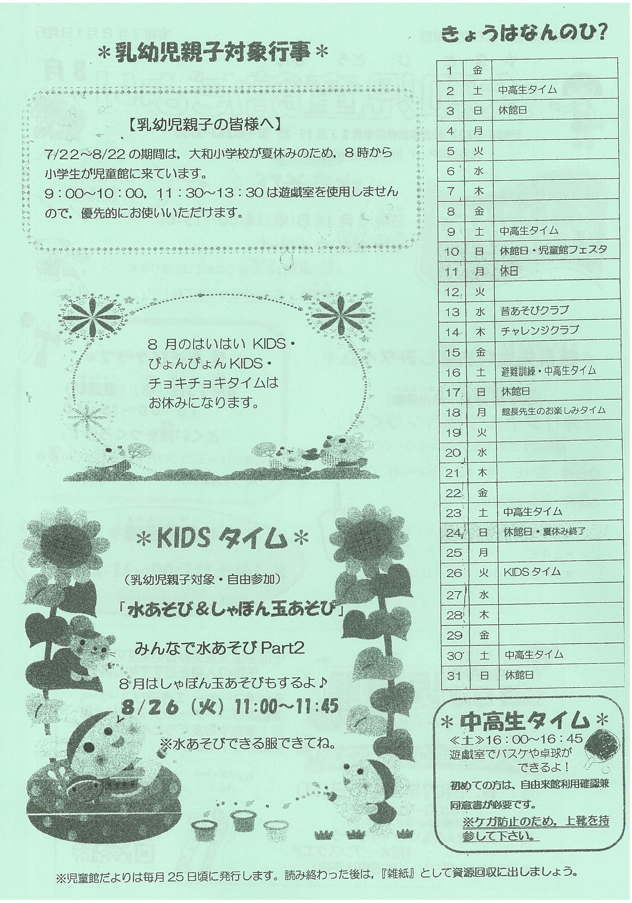 ＊乳幼児親子対象行事＊
【乳幼児親子の皆様へ】
7/22～8/22の期間は，大和小学校が夏休みのため，8時から
小学生が児童館に来ています。
9：00～10：00，11：30～13：30は遊戯室を使用しません
ので，優先的にお使いいただけます。
8月のはいはいKIDS・
ぴょんぴょんKIDS・
チョキチョキタイムは
お休みになります。
＊KIDSタイム＊
（乳幼児親子対象・自由参加）
「水あそび＆しゃぼん玉あそび」
みんなで水あそびPart2
8月はしゃぼん玉あそびもするよ♪
8/26（火）11:00～11:45
※水あそびできる服できてね。
きょうはなんのひ?
1 金
2 土 中高生タイム
3 日 休館日
4 月
5 火
6 水
7 木
8 金
9 土 中高生タイム
10 日 休館日・児童館フェスタ
11 月 休日
12 火
13 水 昔あそびクラブ
14 木 チャレンジクラブ
15 金
16 土 避難訓練・中高生タイム
17 日 休館日
18 月 館長先生のお楽しみタイム
19 火
20 水
21 木
22 金
23 土 中高生タイム
24 日 休館日・夏休み終了
25 月
26 火 KIDSタイム
27 水
28 木
29 金
30 土 中高生タイム
31 日 休館日
＊中高生タイム＊
≪土≫16：00～16：45
遊戯室でバスケや卓球が
できるよ！
初めての方は、自由来館利用確認兼
同意書が必要です。
※ケガ防止のため，上靴を持
参して下さい。
※児童館だよりは毎月25日頃に発行します。読み終わった後は，『雑紙』として資源回収に出しましょう。